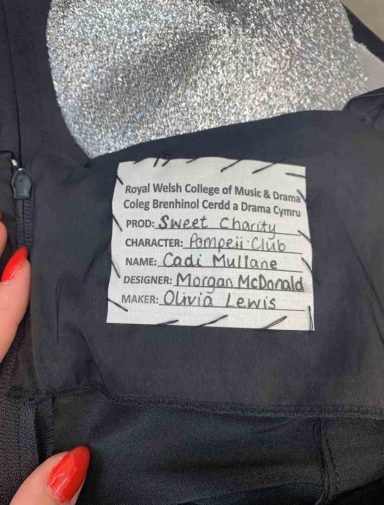 Royal Welsh College of Music & Drama
Coleg Brenhinol Cerdd a Drama Cymru
PROD: Sweet Charity
CHARACTER: Pompeii-Club
NAME: Cadi Mullane
DESIGNER: Morgan McDonald
MAKER: Olivia Lewis